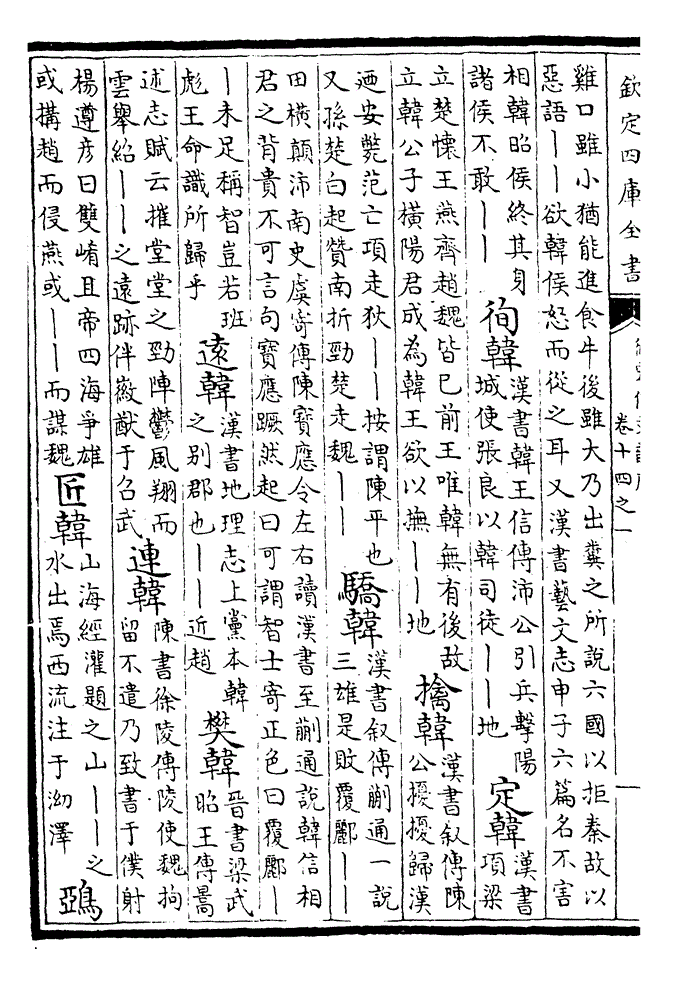 欽定四庫全書
卷十四之一
雞口雖小猶能進食牛後雖大乃出糞之所說六國以拒秦故以
惡語丨丨欲韓侯恕而從之耳又漢書藝文志申子六篇名不害
相韓昭侯終其身
諸侯不敢丨丨
徇韓
漢書韓王信傳沛公引兵擊陽
城使張良以韓司徒丨丨地
定韓
漢書
項梁
立楚懷王燕齊趙魏皆已前王唯韓無有後故
立韓公子橫陽君成為韓王欲以撫丨丨地
擒韓
漢書叙傳陳
公擾擾歸漢
迺安斃范亡項走狄丨丨按謂陳平也
又孫楚白起贊南折勁楚走魏丨丨
驕韓
漢書叙傳蒯通一說
三雄是敗覆酈丨丨
田橫顛沛南史虞寄傳陳寶應令左右讀漢書至蒯通說韓信相
君之背貴不可言句寶應蹶然起曰可謂智士寄正色曰覆酈丨
丨未足稱智豈若班
彪王命識所歸乎
遠韓
漢書地理志上黨本韓
之别郡也丨丨近趙
樊韓
晉書梁武
昭王傳暠
述志賦云摧堂堂之勁陣鬱風翔而
雲舉紹丨丨之遠跡伴徽猷于召武
連韓
陳書徐陵傳陵使魏拘
留不遣乃致書于僕射
楊遵彥曰雙崤且帝四海爭雄
或搆趙而侵燕或丨丨而謀魏
匠韓
山海經灌題之山丨丨之
水出焉西流注于泑澤
鵶